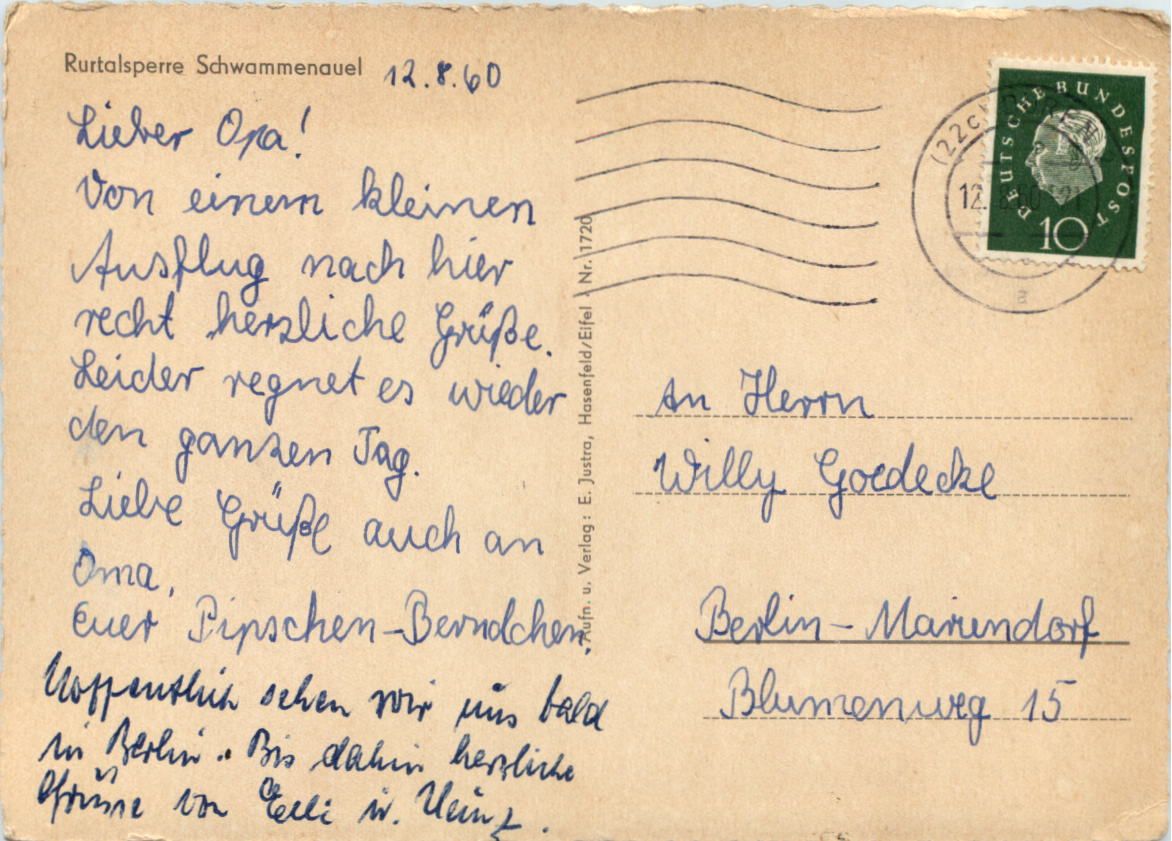 Rurtalsperre Schwammenauel 12.8.60
Lieber Opa!
Von einem kleinen
Ausflug nach hier
recht herzliche Grüße.
Leider regnet es wieder
den ganzen Tag.
Liebe Grüße auch an
Oma,
Euer Pipschen-Berndchen.
Hoffentlich sehen wir uns bald
in Berlin. Bis dahin herzliche
Grüsse von Elli u. Heinz.
Aufn. u. Verlag: E. Justra, Hasenfeld/Eifel - Nr. 1720
DEUTSCHE BUNDESPOST
10
(22c) DÜREN
12. 8.60
An Herrn
Willy Goedecke
Berlin - Mariendorf
Blumenweg 15